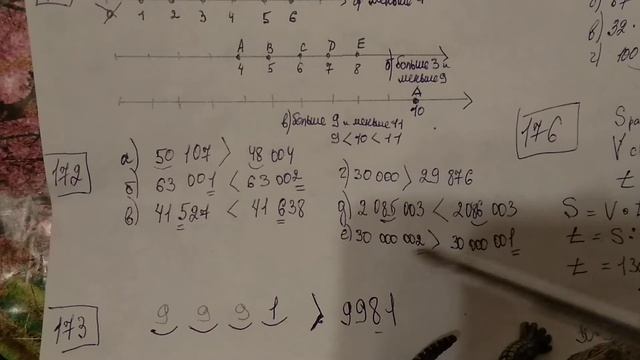 0 1 2 3 4 5 6
A B C D E
4 5 6 7 8
б) больше 3 и
меньше 9
A
10
в) больше 9 и меньше 11
9 < 10 < 11
172
а) 50 107 > 48 004
б) 63 001 < 63 002
в) 41 527 < 41 638
г) 30 000 > 29 876
д) 2 085 003 < 2 086 003
е) 30 000 002 > 30 000 001
173
9 9 9 1 > 9981
176
в) 32
г) 100
S = V
t = S:
t = 13